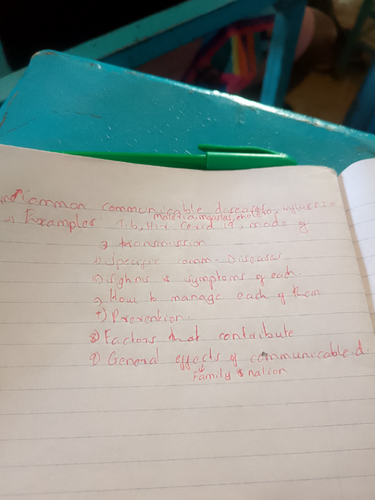 Common communicable diseases, influenza
malaria, measles, cholera
→ Examples T.b, HIV Covid 19, mode of
3 transmission
4) Specific comm- Diseases
5) Sighns & symptoms of each
6) How to manage each of them
7) Prevention.
8) Factors that contribute
9) General effects of communicable d.
family & nation